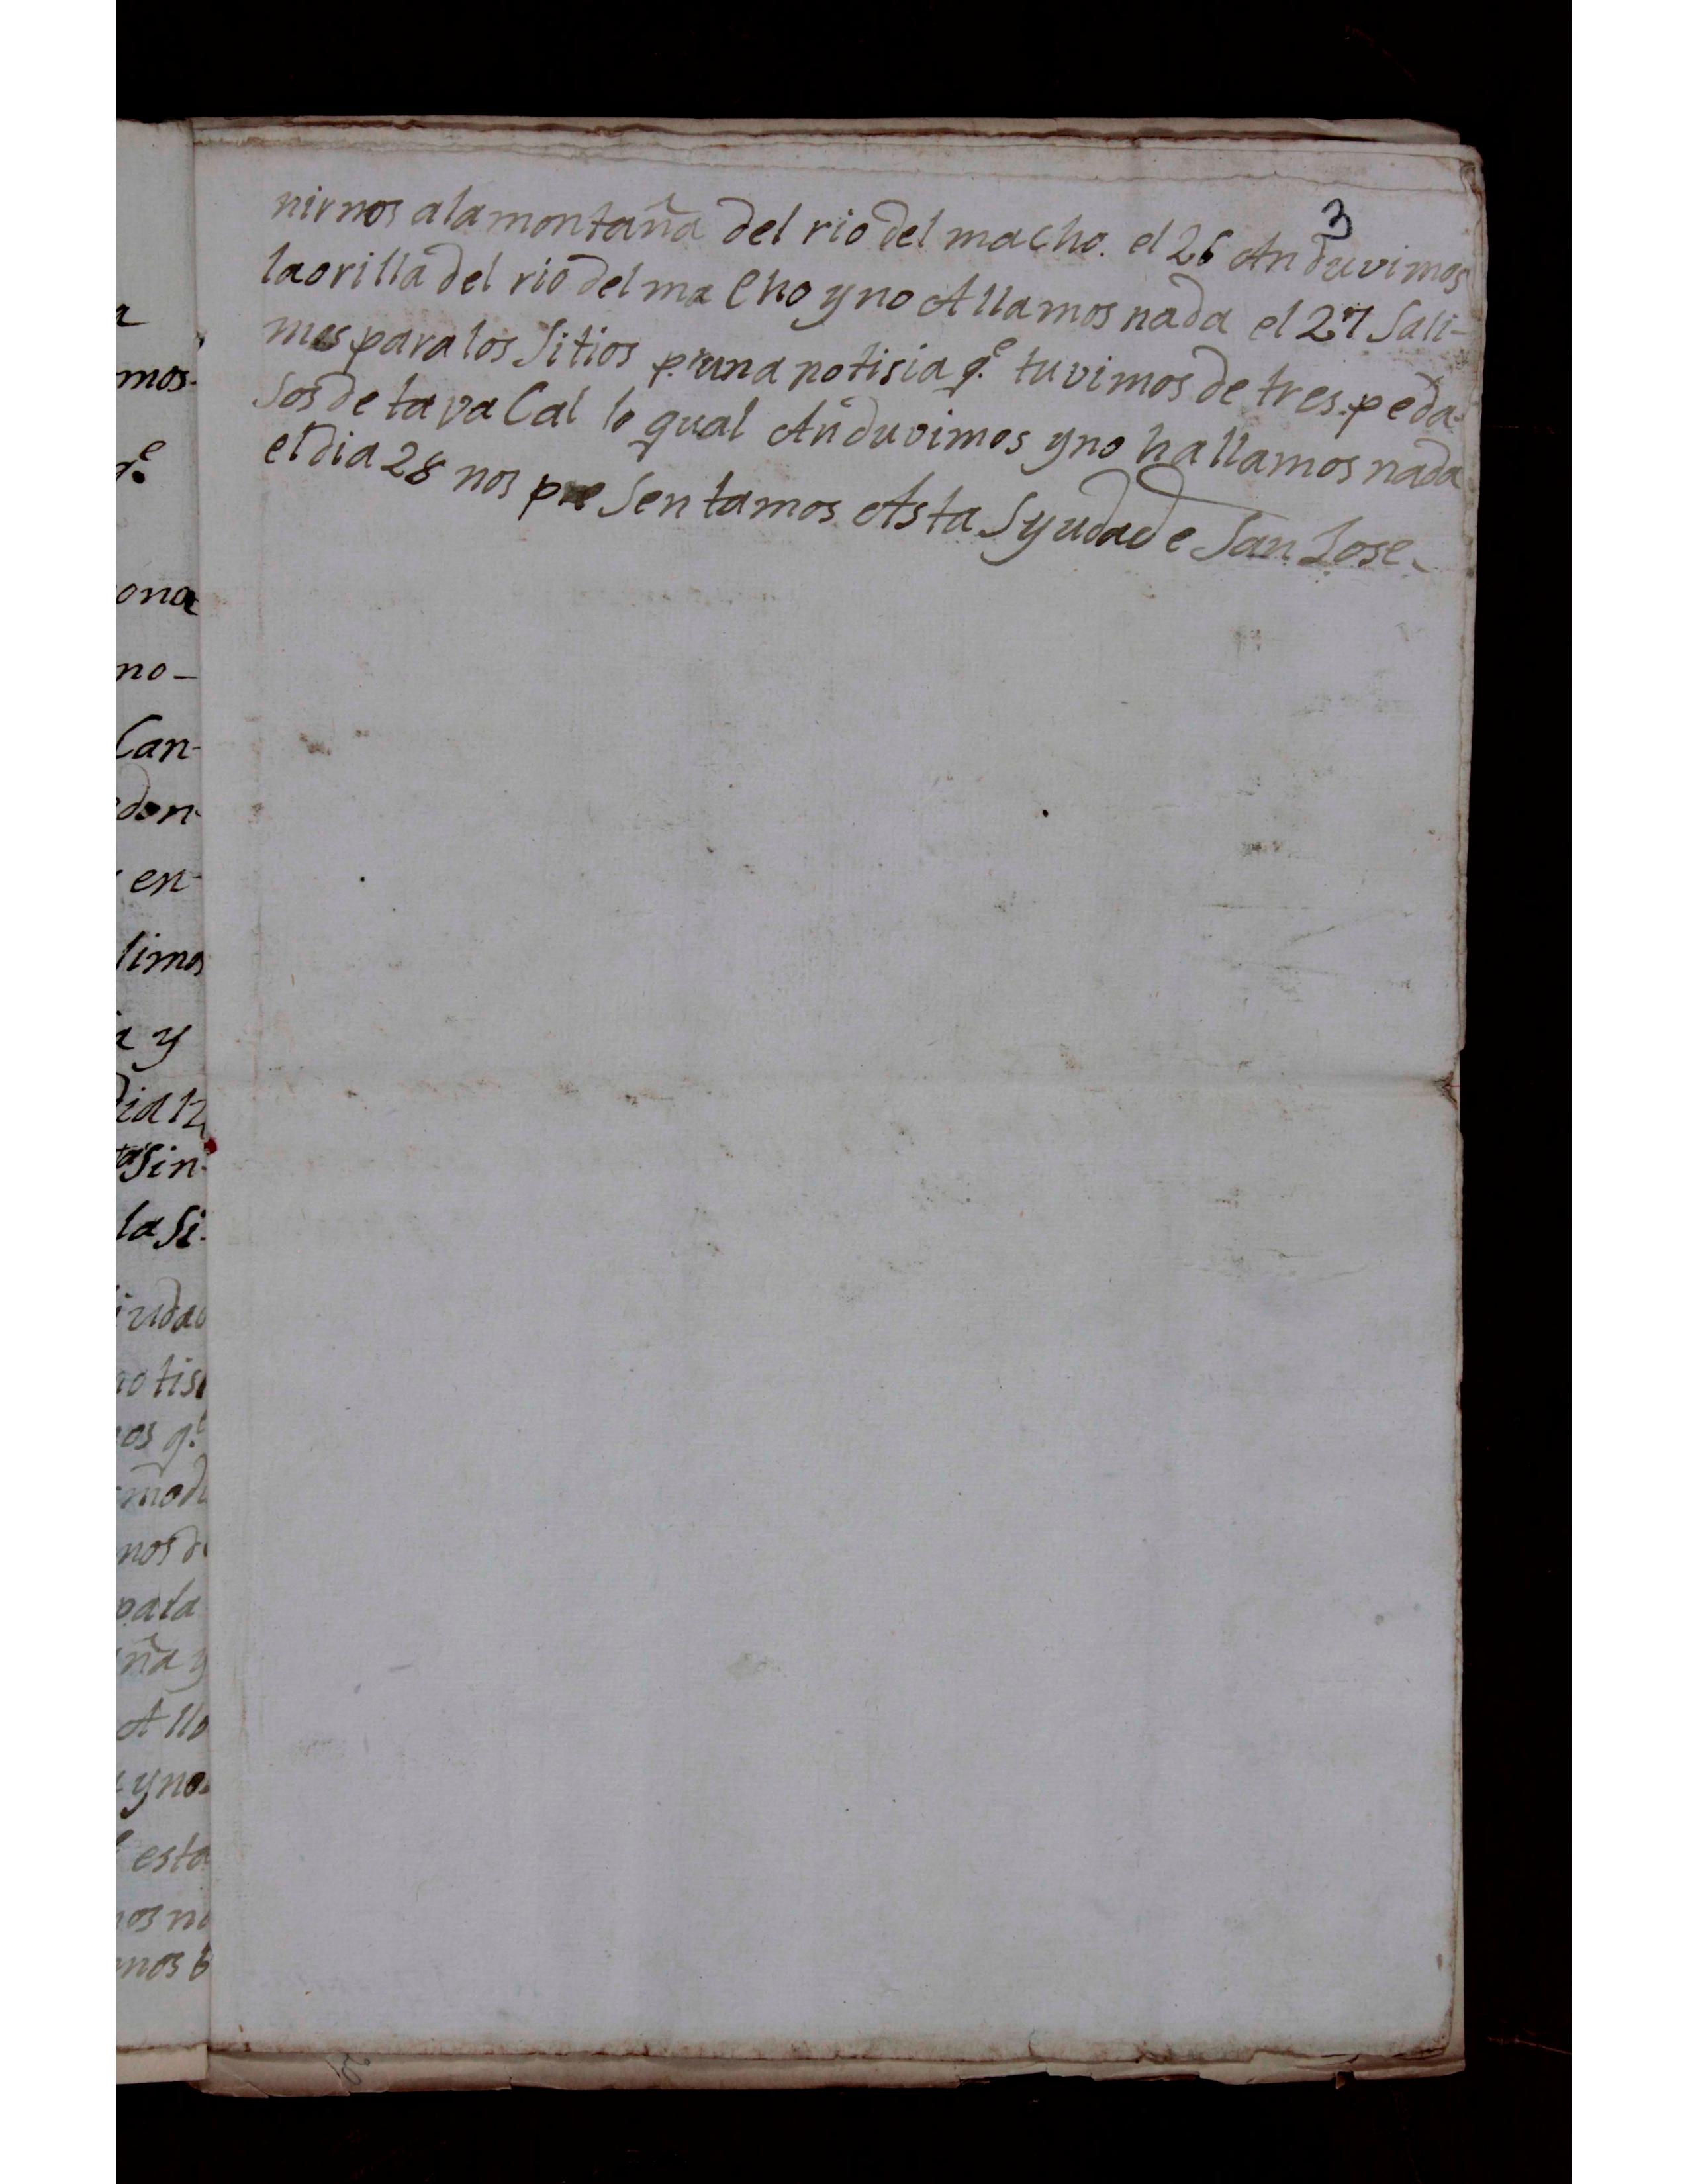 3
nirnos a la montaña del rio del macho. el 26 Anduvimos
la orilla del rio del macho y no Allamos nada el 27 Sali-
mos para los Sitios pr. una notisia qe. tuvimos de tres peda-
sos de tavaCal lo qual Anduvimos y no hallamos nada
el dia 28 nos preSentamos Asta Syudad de San Jose.
a
mos.
qe.
ona
no-
Can-
don-
en-
limos
a y
dia 12
Sin-
la Si-
iudad
notisi
os qe.
nos d
ña y
Allo
y no
esta